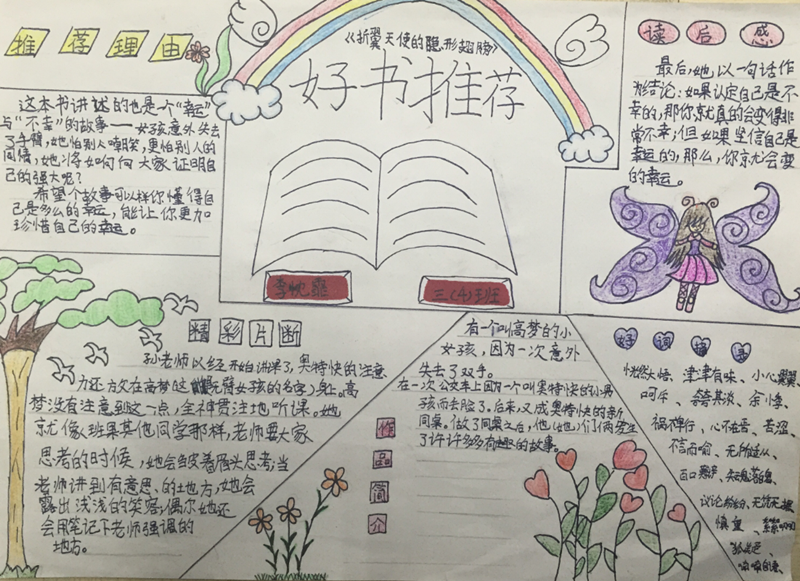 推荐理由
这本书讲述的也是一个“幸运”
与“不幸”的故事——女孩意外失去
了手臂,她怕别人嘲笑,更怕别人的
同情,她将如何向大家证明自
己的强大呢?
希望个故事可以样你懂得自
己是多么的幸运,能让你更加
珍惜自己的幸运。
《折翼天使的隐形翅膀》
好书推荐
三(4)班
读后感
最后,她以一句话作
为结论:如果认定自己是不
幸的,那你就真的会变得非
常不幸;但如果坚信自己是
幸运的,那么,你就会变
的幸运。
精彩片断
孙老师以经开始讲课了,奥特快的注意
力还放在高梦这
无臂女孩的名字)身上。高
梦没有注意到这一点,全神贯注地听课。她
就像班里其他同学那样,老师要大家
思考的时候,她会皱着眉头思考;当
老师讲到有意思的地方,她会
露出浅浅的笑容;偶尔她还
会用笔记下老师强调的
地方。
作品简介
有一个叫高梦的小
女孩,因为一次意外
失去了双手。
在一次公交车上因为一个叫奥特快的小男
孩而丢脸了。后来,又成奥特快的新
同桌。做了同桌之后,他(她)们俩发生
了许许多多有趣的故事。
好词
恍然大悟、津津有味、小心翼翼
呵斥、
祸不单行、心不在焉、苦涩、
不言而喻、无所适从、
议论纷纷、无忧无虑
慎重、